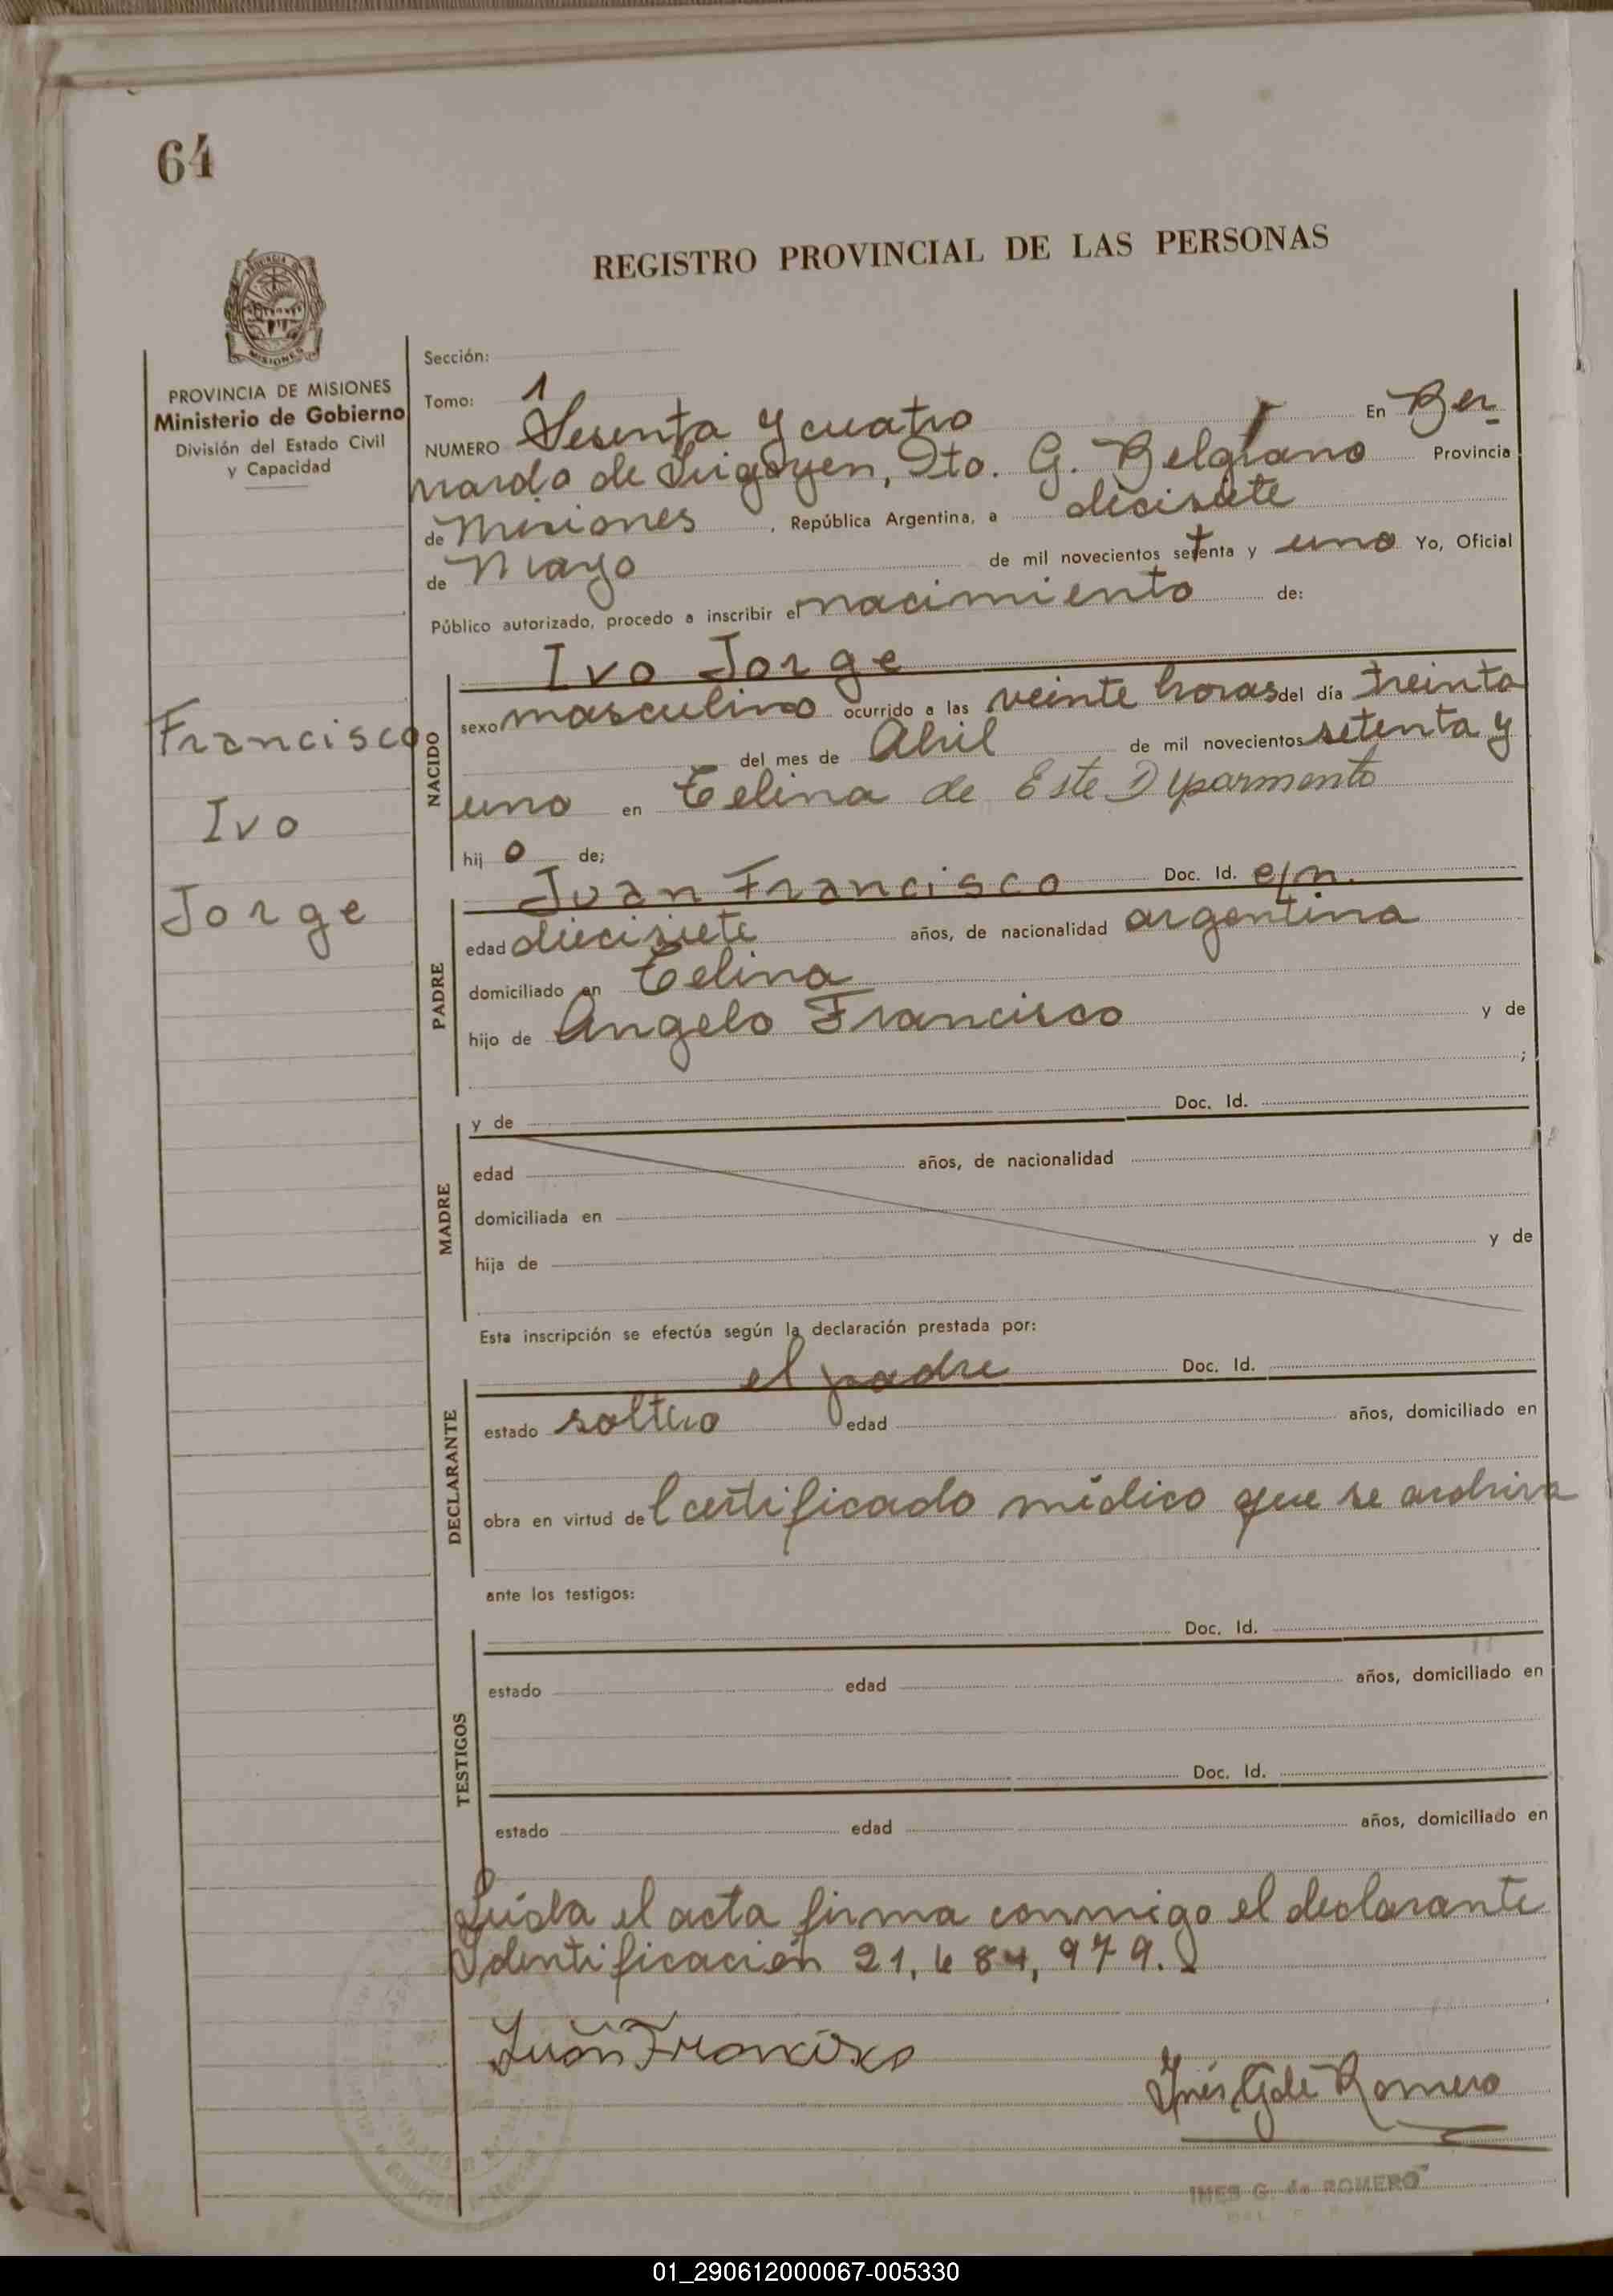 64
REGISTRO PROVINCIAL DE LAS PERSONAS
PROVINCIA DE MISIONES
Ministerio de Gobierno
División del Estado Civil
y Capacidad
Francisco
Ivo
Jorge
Sección:
Tomo: 1
NUMERO Sesenta y cuatro En Ber-
nardo de Irigoyen, Dto. G. Belgrano Provincia
de Misiones, República Argentina, a diecisiete
de Mayo de mil novecientos setenta y uno Yo, Oficial
Público autorizado, procedo a inscribir el nacimiento de:
NACIDO
Ivo Jorge
sexo masculino ocurrido a las veinte horas del día treinta
del mes de Abril de mil novecientos setenta y
uno en Celina de Este Dyparmento
hij o de;
PADRE
Juan Francisco Doc. Id. e/n.
edad diecisiete años, de nacionalidad argentina
domiciliado en Celina
hijo de Angelo Francisco y de
;
MADRE
y de Doc. Id.
edad años, de nacionalidad
domiciliada en
hija de y de
Esta inscripción se efectúa según la declaración prestada por:
DECLARANTE
el padre Doc. Id.
estado soltero edad años, domiciliado en
obra en virtud del certificado médico que se archiva
ante los testigos:
TESTIGOS
Doc. Id.
estado edad años, domiciliado en
Doc. Id.
estado edad años, domiciliado en
Leída el acta firma conmigo el declarante
Identificación 21,684,979.
Juan Francisco
Inés G de Romero
INES G. de ROMERO
01_290612000067-005330